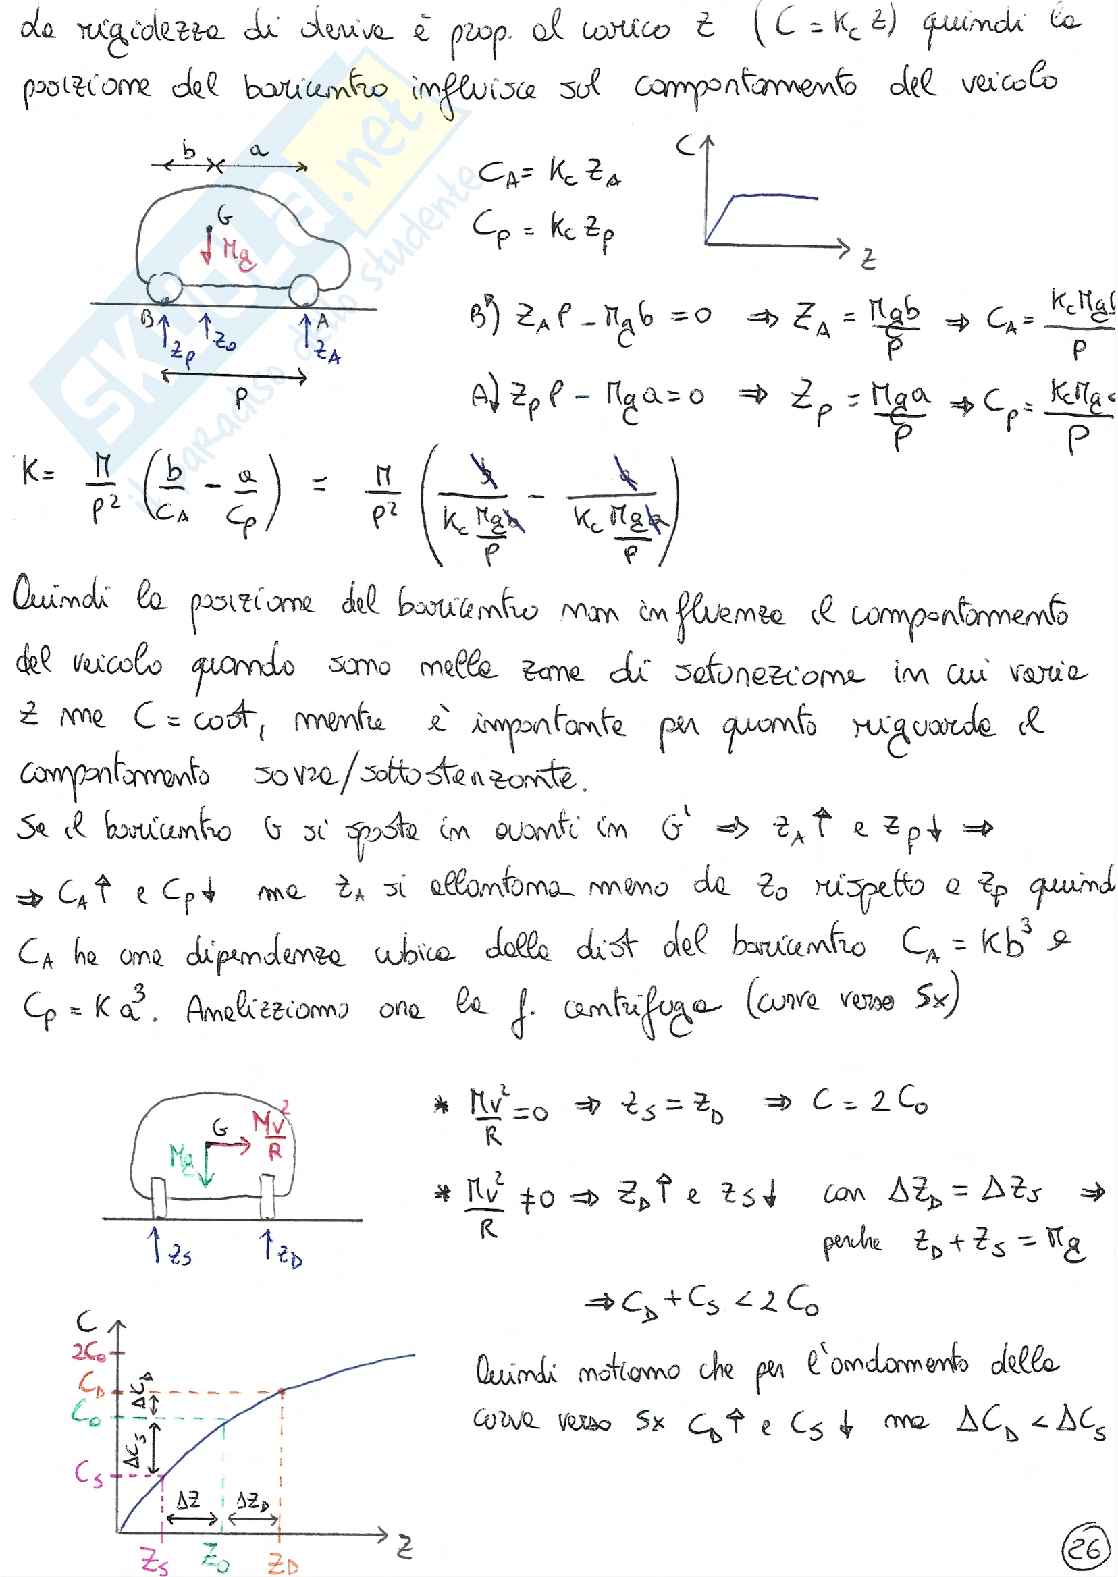 La rigidezza di deriva è prop. al carico Z (C = Kc Z) quindi la
posizione del baricentro influisce sul comportamento del veicolo
b a
G
Mg
B A
Zp Z0 ZA
P
CA = Kc ZA
Cp = Kc Zp
C
Z
B) ZA P - Mgb = 0 ⇒ ZA = Mgb/P ⇒ CA = Kc Mgb/P
A) Zp P - Mga = 0 ⇒ Zp = Mga/P ⇒ Cp = Kc Mga/P
K = M/P² (b/CA - a/Cp) = M/P² (b/(Kc Mgb/P) - a/(Kc Mga/P))
Quindi la posizione del baricentro non influenza il comportamento
del veicolo quando sono nella zona di saturazione in cui varia
Z ma C = cost, mentre è importante per quanto riguarda il
comportamento sovra/sottosterzante.
Se il baricentro G si sposta in avanti in G' ⇒ ZA ↑ e Zp ↓ ⇒
⇒ CA ↑ e Cp ↓ ma ZA si allontana meno da Z0 rispetto a Zp quind
CA ha una dipendenza cubica dalla dist del baricentro CA = Kb³ e
Cp = Ka³. Analizziamo ora la f. centrifuga (curva verso Sx)
G Mv²/R
Mg
ZS ZD
* Mv²/R = 0 ⇒ ZS = ZD ⇒ C = 2C0
* Mv²/R ≠ 0 ⇒ ZD ↑ e ZS ↓ con ΔZD = ΔZS ⇒
perche ZD + ZS = Mg
⇒ CD + CS < 2C0
C
2C0
CD ΔCD
C0
ΔCS
CS
ΔZ ΔZD
ZS Z0 ZD Z
Quindi notiamo che per l'andamento della
curva verso Sx CD ↑ e CS ↓ ma ΔCD < ΔCS
26
SKUOLA.net
il paradiso dello studente